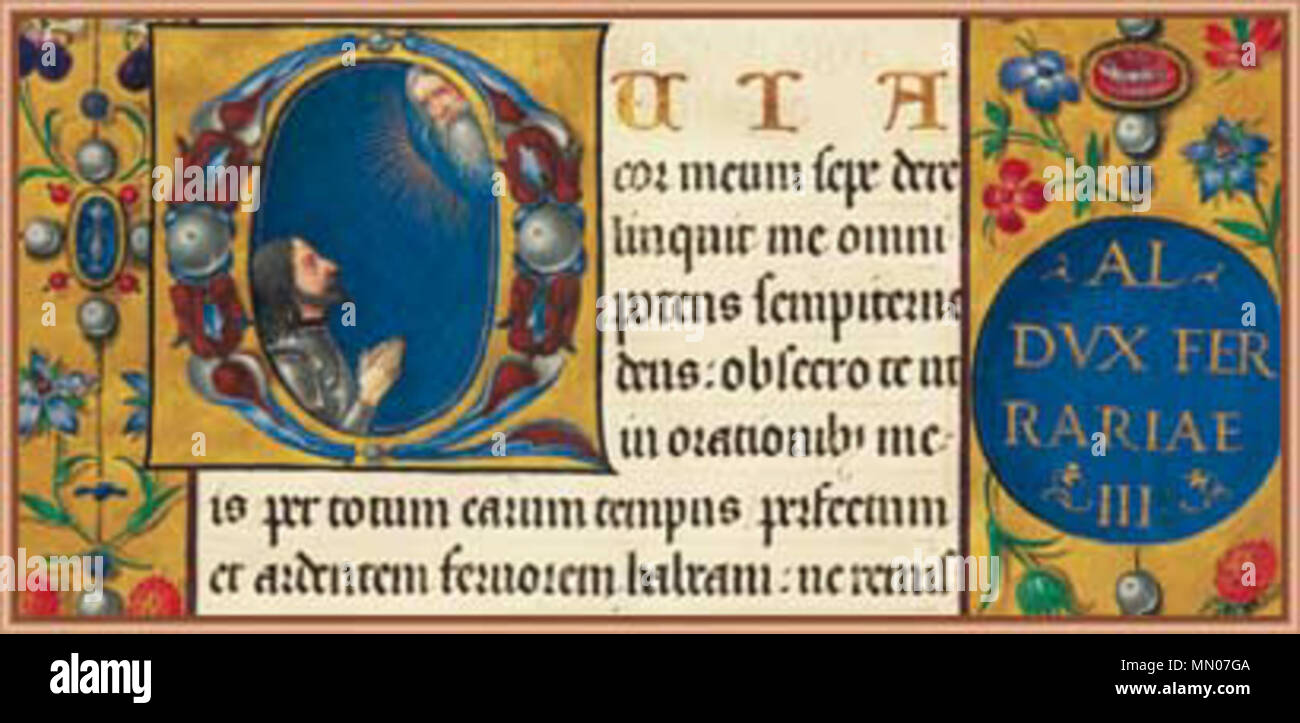 QUIA
cor meum sepe dere
linquit me omni
potens sempiterne
deus: obsecro te ut
in orationibꝰ me-
is per totum earum tempus perfectum
et ardentem feruorem habeam: ne remis
AL
DVX FER
RARIAE
III
alamy
Image ID: MN07GA
www.alamy.com